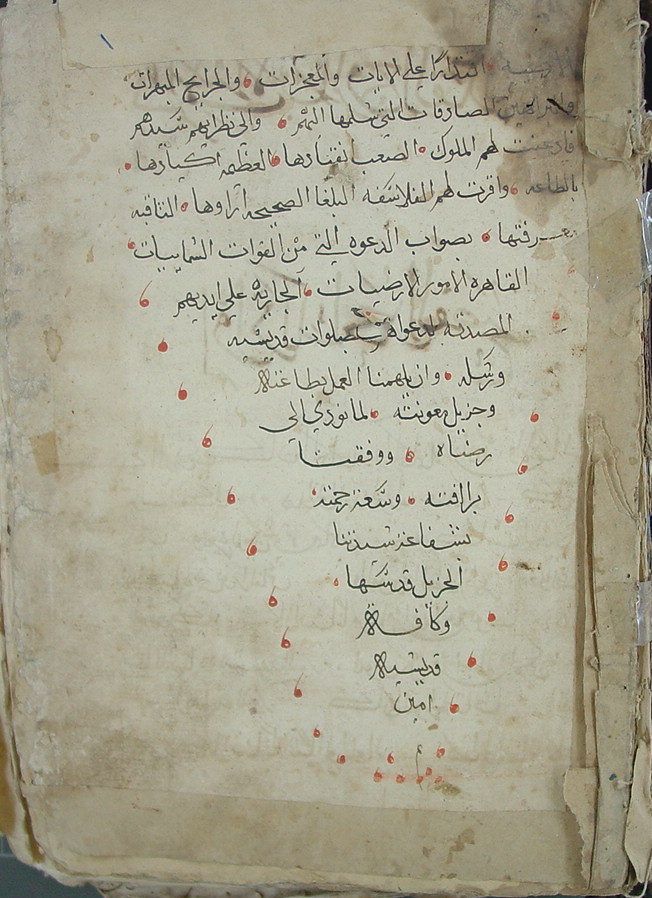 اقتدارا علي الايات والمعجزات والجرايح المبهرات
الصادقات التي سلمها اليهم والي نظرايهم سيدهم
فادعنت لهم الملوك الصعب انقيادها العظيمه اكيادها
بالطاعه واقرت لهم الفلاسفه البلغا الصحيحه اراوها الثاقبه
معرفتها بصواب الدعوه التي من القوات السماييات
القاهره الامور الارضيات الجاريه علي ايديهم
المصدقه لدعواهم بصلوات قديسيه
ورسله وان يلهمنا العمل بطاعته
وجزيل معونته لما يودي الي
رضاه ووفقنا
برافته وسعة رحمته
بشفاعة سيدتنا
الجزيل قدسها
وكافة
قديسيه
امين